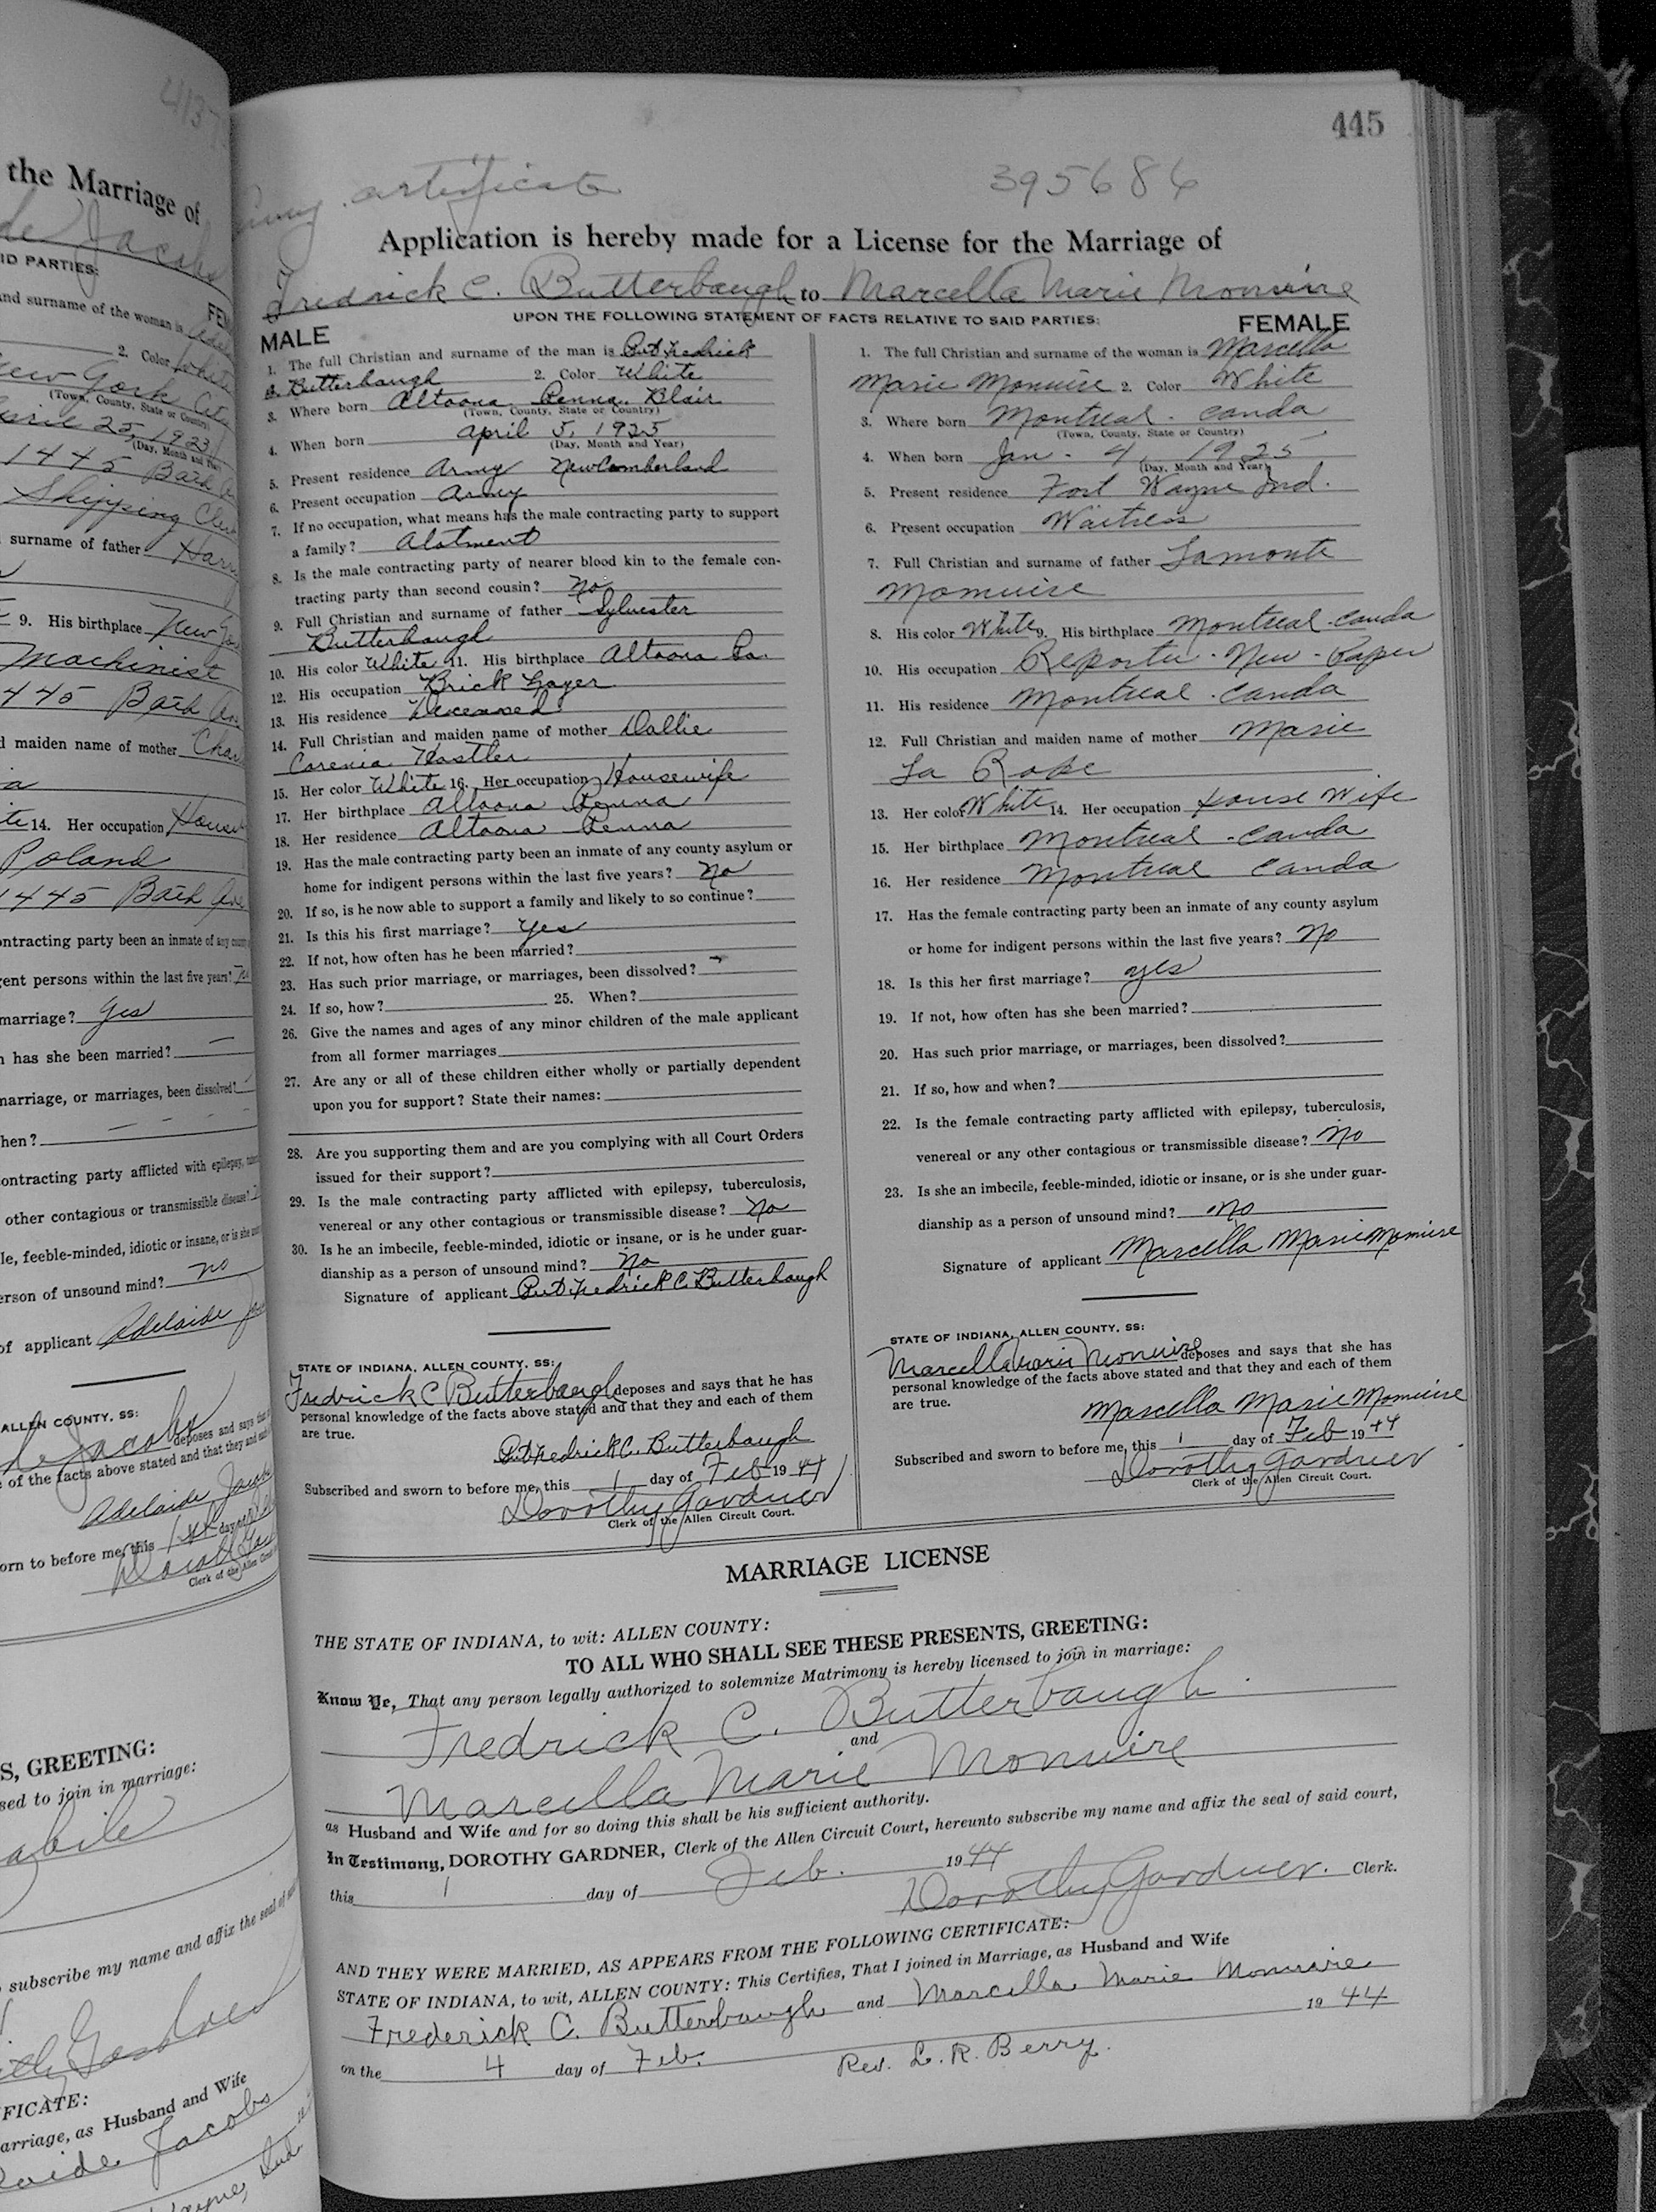 the Marriage of
Jacobs
ID PARTIES:
and surname of the woman is
2. Color White
New York City
(Town, County, State or Country)
April 25, 1923
(Day, Month and Year)
1445 Bath
Shipping Clerk
surname of father Harry
9. His birthplace New
Machinist
445 Bath Ave
d maiden name of mother
te 14. Her occupation House
Poland
1445 Bath Ave
ontracting party been an inmate of any county
gent persons within the last five years?
marriage? yes
n has she been married?
marriage, or marriages, been dissolved?
hen?
ontracting party afflicted with epilepsy,
other contagious or transmissible disease?
le, feeble-minded, idiotic or insane, or is she
erson of unsound mind? no
of applicant Adelaide
ALLEN COUNTY, SS:
Jacobs deposes and says that
e of the facts above stated and that they and each
Adelaide Jacobs
orn to before me, this 1st day of
Clerk of the Allen Circuit
S, GREETING:
sed to join in marriage:
subscribe my name and affix the seal of
FICATE:
arriage, as Husband and Wife
Jacobs
445
Army certificate
395686
Application is hereby made for a License for the Marriage of
Fredrick C. Butterbaugh to Marcella Marie Monuire
UPON THE FOLLOWING STATEMENT OF FACTS RELATIVE TO SAID PARTIES:
MALE
1. The full Christian and surname of the man is Pvt Fredrick
C. Butterbaugh 2. Color White
3. Where born Altoona Penna. Blair
(Town, County, State or Country)
4. When born april 5, 1925
(Day, Month and Year)
5. Present residence Army New Cumberland
6. Present occupation Army
7. If no occupation, what means has the male contracting party to support
a family? Alotment
8. Is the male contracting party of nearer blood kin to the female con-
tracting party than second cousin? No
9. Full Christian and surname of father Sylvester
Butterbaugh
10. His color White 11. His birthplace Altoona Pa.
12. His occupation Brick Layer
13. His residence Deceased
14. Full Christian and maiden name of mother Dallie
Corenia Hostler
15. Her color White 16. Her occupation Housewife
17. Her birthplace Altoona Penna
18. Her residence Altoona Penna
19. Has the male contracting party been an inmate of any county asylum or
home for indigent persons within the last five years? No
20. If so, is he now able to support a family and likely to so continue?
21. Is this his first marriage? Yes
22. If not, how often has he been married?
23. Has such prior marriage, or marriages, been dissolved?
24. If so, how? 25. When?
26. Give the names and ages of any minor children of the male applicant
from all former marriages
27. Are any or all of these children either wholly or partially dependent
upon you for support? State their names:
28. Are you supporting them and are you complying with all Court Orders
issued for their support?
29. Is the male contracting party afflicted with epilepsy, tuberculosis,
venereal or any other contagious or transmissible disease? No
30. Is he an imbecile, feeble-minded, idiotic or insane, or is he under guar-
dianship as a person of unsound mind? No
Signature of applicant Pvt Fredrick C. Butterbaugh
STATE OF INDIANA, ALLEN COUNTY, SS:
Fredrick C Butterbaugh deposes and says that he has
personal knowledge of the facts above stated and that they and each of them
are true.
Pvt Fredrick C. Butterbaugh
Subscribed and sworn to before me, this 1 day of Feb 19 44
Dorothy Gardner
Clerk of the Allen Circuit Court.
FEMALE
1. The full Christian and surname of the woman is Marcella
Marie Monuire 2. Color White
3. Where born Montreal - Canda
(Town, County, State or Country)
4. When born Jan - 4, 1925
(Day, Month and Year)
5. Present residence Fort Wayne Ind.
6. Present occupation Waitress
7. Full Christian and surname of father Lamonte
Monuire
8. His color White 9. His birthplace Montreal - Canda
10. His occupation Reporter - New - Paper
11. His residence Montreal - Canda
12. Full Christian and maiden name of mother Marie
La Rope
13. Her color White 14. Her occupation House Wife
15. Her birthplace Montreal - Canda
16. Her residence Montreal Canda
17. Has the female contracting party been an inmate of any county asylum
or home for indigent persons within the last five years? No
18. Is this her first marriage? yes
19. If not, how often has she been married?
20. Has such prior marriage, or marriages, been dissolved?
21. If so, how and when?
22. Is the female contracting party afflicted with epilepsy, tuberculosis,
venereal or any other contagious or transmissible disease? No
23. Is she an imbecile, feeble-minded, idiotic or insane, or is she under guar-
dianship as a person of unsound mind? No
Signature of applicant Marcella Marie Monuire
STATE OF INDIANA, ALLEN COUNTY, SS:
Marcella Marie Monuire deposes and says that she has
personal knowledge of the facts above stated and that they and each of them
are true.
Marcella Marie Monuire
Subscribed and sworn to before me, this 1 day of Feb 19 44
Dorothy Gardner
Clerk of the Allen Circuit Court.
MARRIAGE LICENSE
THE STATE OF INDIANA, to wit: ALLEN COUNTY:
TO ALL WHO SHALL SEE THESE PRESENTS, GREETING:
Know Ye, That any person legally authorized to solemnize Matrimony is hereby licensed to join in marriage:
Fredrick C. Butterbaugh
and
Marcella Marie Monuire
as Husband and Wife and for so doing this shall be his sufficient authority.
In Testimony, DOROTHY GARDNER, Clerk of the Allen Circuit Court, hereunto subscribe my name and affix the seal of said court,
this 1 day of Feb. 19 44
Dorothy Gardner. Clerk.
AND THEY WERE MARRIED, AS APPEARS FROM THE FOLLOWING CERTIFICATE:
STATE OF INDIANA, to wit, ALLEN COUNTY: This Certifies, That I joined in Marriage, as Husband and Wife
Frederick C. Butterbaugh and Marcella Marie Monuire
on the 4 day of Feb. 19 44
Rev. L. R. Berry.